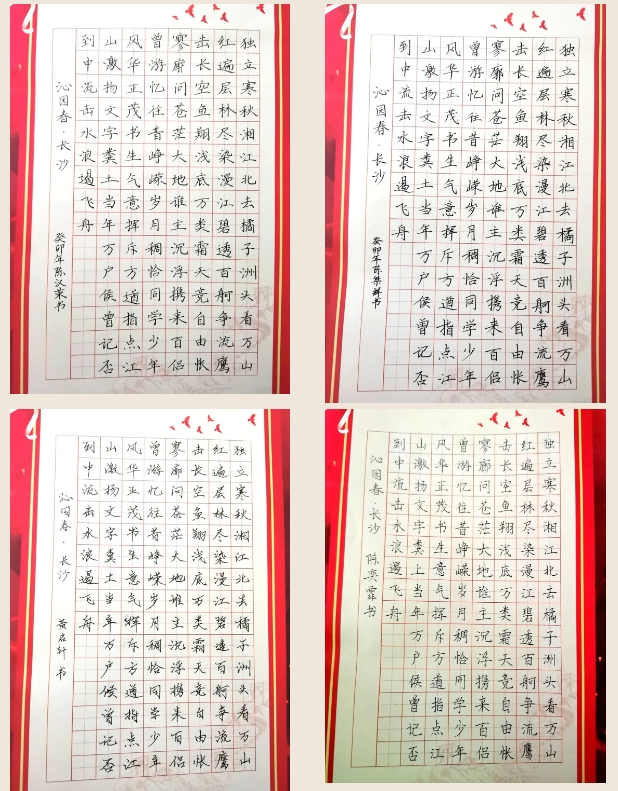 独立寒秋湘江北去橘子洲头看万山
红遍层林尽染漫江碧透百舸争流鹰
击长空鱼翔浅底万类霜天竞自由怅
寥廓问苍茫大地谁主沉浮携来百侣
曾游忆往昔峥嵘岁月稠恰同学少年
风华正茂书生气意挥斥方遒指点江
山激扬文字粪土当年万户侯曾记否
到中流击水浪遏飞舟
沁园春·长沙
癸卯年陈汉荣书
独立寒秋湘江北去橘子洲头看万山
红遍层林尽染漫江碧透百舸争流鹰
击长空鱼翔浅底万类霜天竞自由怅
寥廓问苍茫大地谁主沉浮携来百侣
曾游忆往昔峥嵘岁月稠恰同学少年
风华正茂书生气意挥斥方遒指点江
山激扬文字粪土当年万户侯曾记否
到中流击水浪遏飞舟
沁园春·长沙
癸卯年陈书
独立寒秋湘江北去橘子洲头看万山
红遍层林尽染漫江碧透百舸争流鹰
击长空鱼翔浅底万类霜天竞自由怅
寥廓问苍茫大地谁主沉浮携来百侣
曾游忆往昔峥嵘岁月稠恰同学少年
风华正茂书生意气辉斥方遒指点江
山激扬文字粪土当年万户侯曾记否
到中流击水浪遏飞舟
沁园春·长沙
黄启轩书
独立寒秋湘江北去橘子洲头看万山
红遍层林尽染漫江碧透百舸争流鹰
击长空鱼翔浅底万类霜天竞自由怅
寥廓问苍茫大地谁主沉浮携来百侣
曾游忆往昔峥嵘岁月稠恰同学少年
风华正茂书生意气挥斥方遒指点江
山激扬文字粪土当年万户侯曾记否
到中流击水浪遏飞舟
沁园春·长沙 陈奕霏书